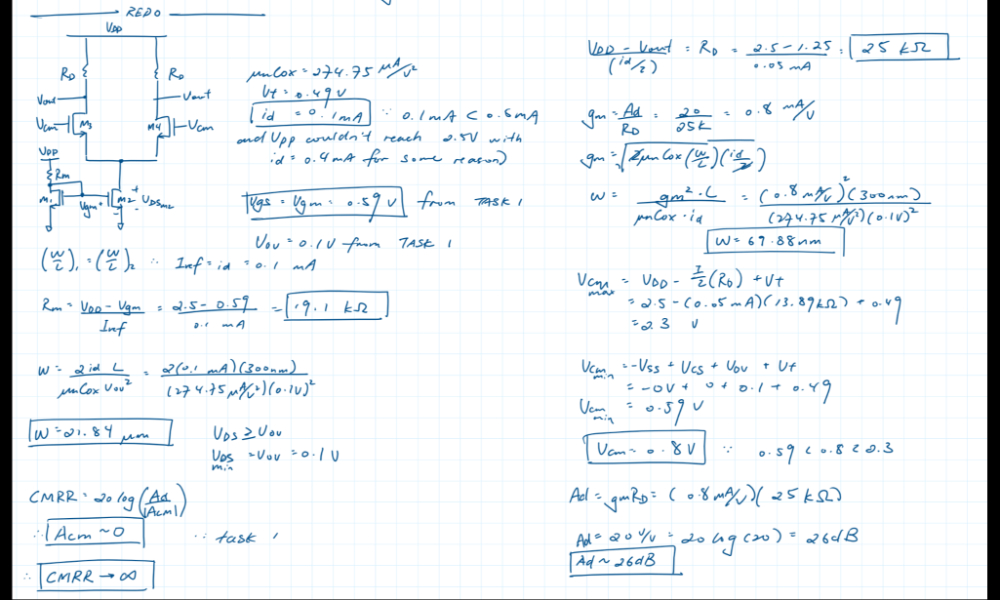 REDO
VDD
RD RD
Vout Vout
Vcm M3 M4 Vcm
VDD
Rm
M1 Vgm M2 + VDSM2 -
μnCox = 274.75 μA/V²
Vt = 0.49 V
id = 0.1mA ∵ 0.1mA < 0.5mA
and VDD couldn't reach 2.5V with
id = 0.4mA for some reason)
Vgs = Vgm = 0.59 V from TASK 1
Vov = 0.1V from TASK 1
(W/L)₁ = (W/L)₂ ∴ Iref = id = 0.1 mA
Rm = (VDD - Vgm)/Iref = (2.5 - 0.59)/0.1 mA = 19.1 kΩ
W = 2id L/(μnCox Vov²) = 2(0.1 mA)(300nm)/((274.75 μA/V²)(0.1V)²
W = 21.84 μm
VDS ≥ Vov
VDS min = Vov = 0.1 V
CMRR = 20 log(Ad/|Acm|)
∴ Acm ~ 0 ∵ task 1
∴ CMRR → ∞
(VDD - Vout)/(id/2) = RD = (2.5 - 1.25)/0.05 mA = 25 kΩ
gm = Ad/RD = 20/25k = 0.8 mA/V
gm = √(2μnCox(W/L)(id/2))
W = gm² · L/(μnCox · id) = (0.8 mA/V)²(300nm)/((274.75 μA/V²)(0.1V)²
W = 69.88nm
Vcm max = VDD - I/2(RD) + Vt
= 2.5 - (0.05mA)(13.89kΩ) + 0.49
= 2.3 V
Vcm min = -VSS + VCS + VOV + Vt
= -0V + 0 + 0.1 + 0.49
Vcm min = 0.59 V
Vcm = 0.8V ∵ 0.59 < 0.8 < 2.3
Ad = gmRD = (0.8 mA/V)(25 kΩ)
Ad = 20 V/V = 20 log(20) = 26dB
Ad ~ 26dB